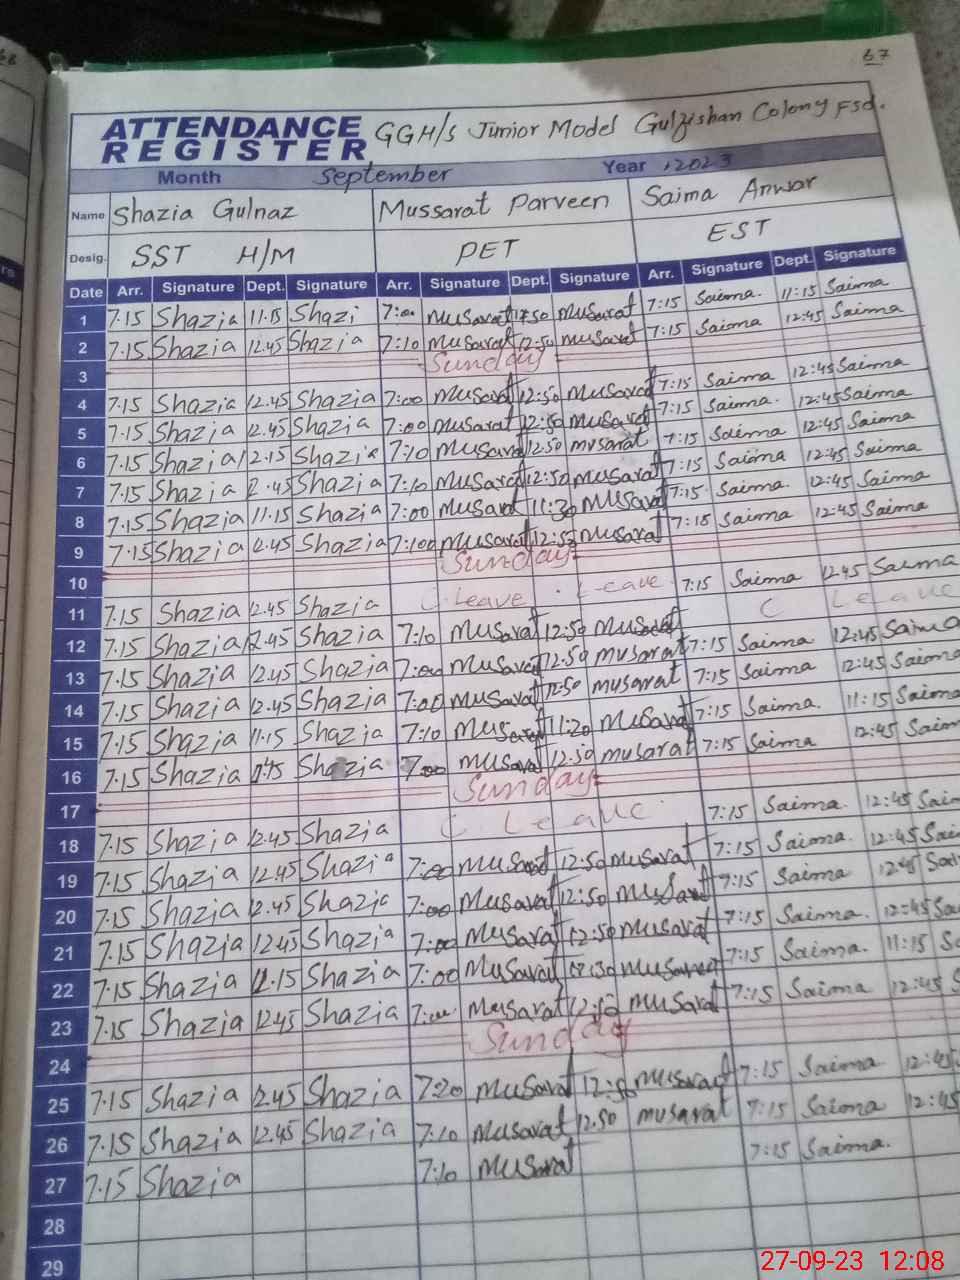 67
ATTENDANCE REGISTER GGH/s Junior Model Gulfishan Colony Fsd.
Month September Year 2023
Name Shazia Gulnaz Mussarat Parveen Saima Anwar
Desig. SST H/M PET EST
Date Arr. Signature Dept. Signature Arr. Signature Dept. Signature Arr. Signature Dept. Signature
1 7.15 Shazia 11.15 Shazi 7:00 Musarat Musarat 7:15 Saima. 11:15 Saima
2 7.15 Shazia 12.45 Shazia 7:10 Musarat 12:50 Musarat 7:15 Saima 12:45 Saima
3 Sunday
4 7.15 Shazia 12.45 Shazia 7:00 Musarat 12:50 Musarat 7:15 Saima 12:45 Saima
5 7.15 Shazia 12.45 Shazia 7:00 Musarat 12:50 Musarat 7:15 Saima. 12:45 Saima
6 7.15 Shazia 12.15 Shazia 7:10 Musarat 12:50 musarat 7:15 Saima 12:45 Saima
7 7.15 Shazia 12.45 Shazia 7:10 Musarat 12:50 Musarat 7:15 Saima 12:45 Saima
8 7.15 Shazia 11.15 Shazia 7:00 Musarat 11:30 Musarat 7:15 Saima. 12:45 Saima
9 7.15 Shazia 12.45 Shazia 7:00 Musarat 12:50 Musarat 7:15 Saima 12:45 Saima
10 Sunday
11 7.15 Shazia 12.45 Shazia C. Leave . Leave 7:15 Saima 12:45 Saima
12 7.15 Shazia 12.45 Shazia 7:10 Musarat 12:50 Musarat C Leave
13 7.15 Shazia 12.45 Shazia 7:00 Musarat 12:50 musarat 7:15 Saima 12:45 Saima
14 7.15 Shazia 12.45 Shazia 7:00 Musarat 12:50 musarat 7:15 Saima 12:45 Saima
15 7.15 Shazia 11.15 Shazia 7:10 Musarat 11:20 Musarat 7:15 Saima. 11:15 Saima
16 7.15 Shazia Shazia 7:00 Musarat 12:50 musarat 7:15 Saima 12:45 Saim
17 Sunday
18 7.15 Shazia 12.45 Shazia C Leave 7:15 Saima. 12:45 Saim
19 7.15 Shazia 12.45 Shazia 7:00 Musarat 12:50 Musarat 7:15 Saima. 12:45 Sai
20 7.15 Shazia 12.45 Shazia 7:00 Musarat 12:50 Musarat 7:15 Saima 12:45 Sai
21 7.15 Shazia 12.45 Shazia 7:00 Musarat 12:50 Musarat 7:15 Saima. 12:45 Sa
22 7.15 Shazia 11.15 Shazia 7:00 Musarat Musarat 7:15 Saima. 11:15 Sa
23 7.15 Shazia 12.45 Shazia 7:00 Musarat 12:50 Musarat 7:15 Saima 12:45 S
24 Sunday
25 7.15 Shazia 12.45 Shazia 7:20 Musarat 12:50 Musarat 7:15 Saima 12:45
26 7.15 Shazia 12.45 Shazia 7:10 Musarat 12.50 musarat 7:15 Saima 12:45
27 7.15 Shazia 7:10 Musarat 7:15 Saima.
28
29
27-09-23 12:08